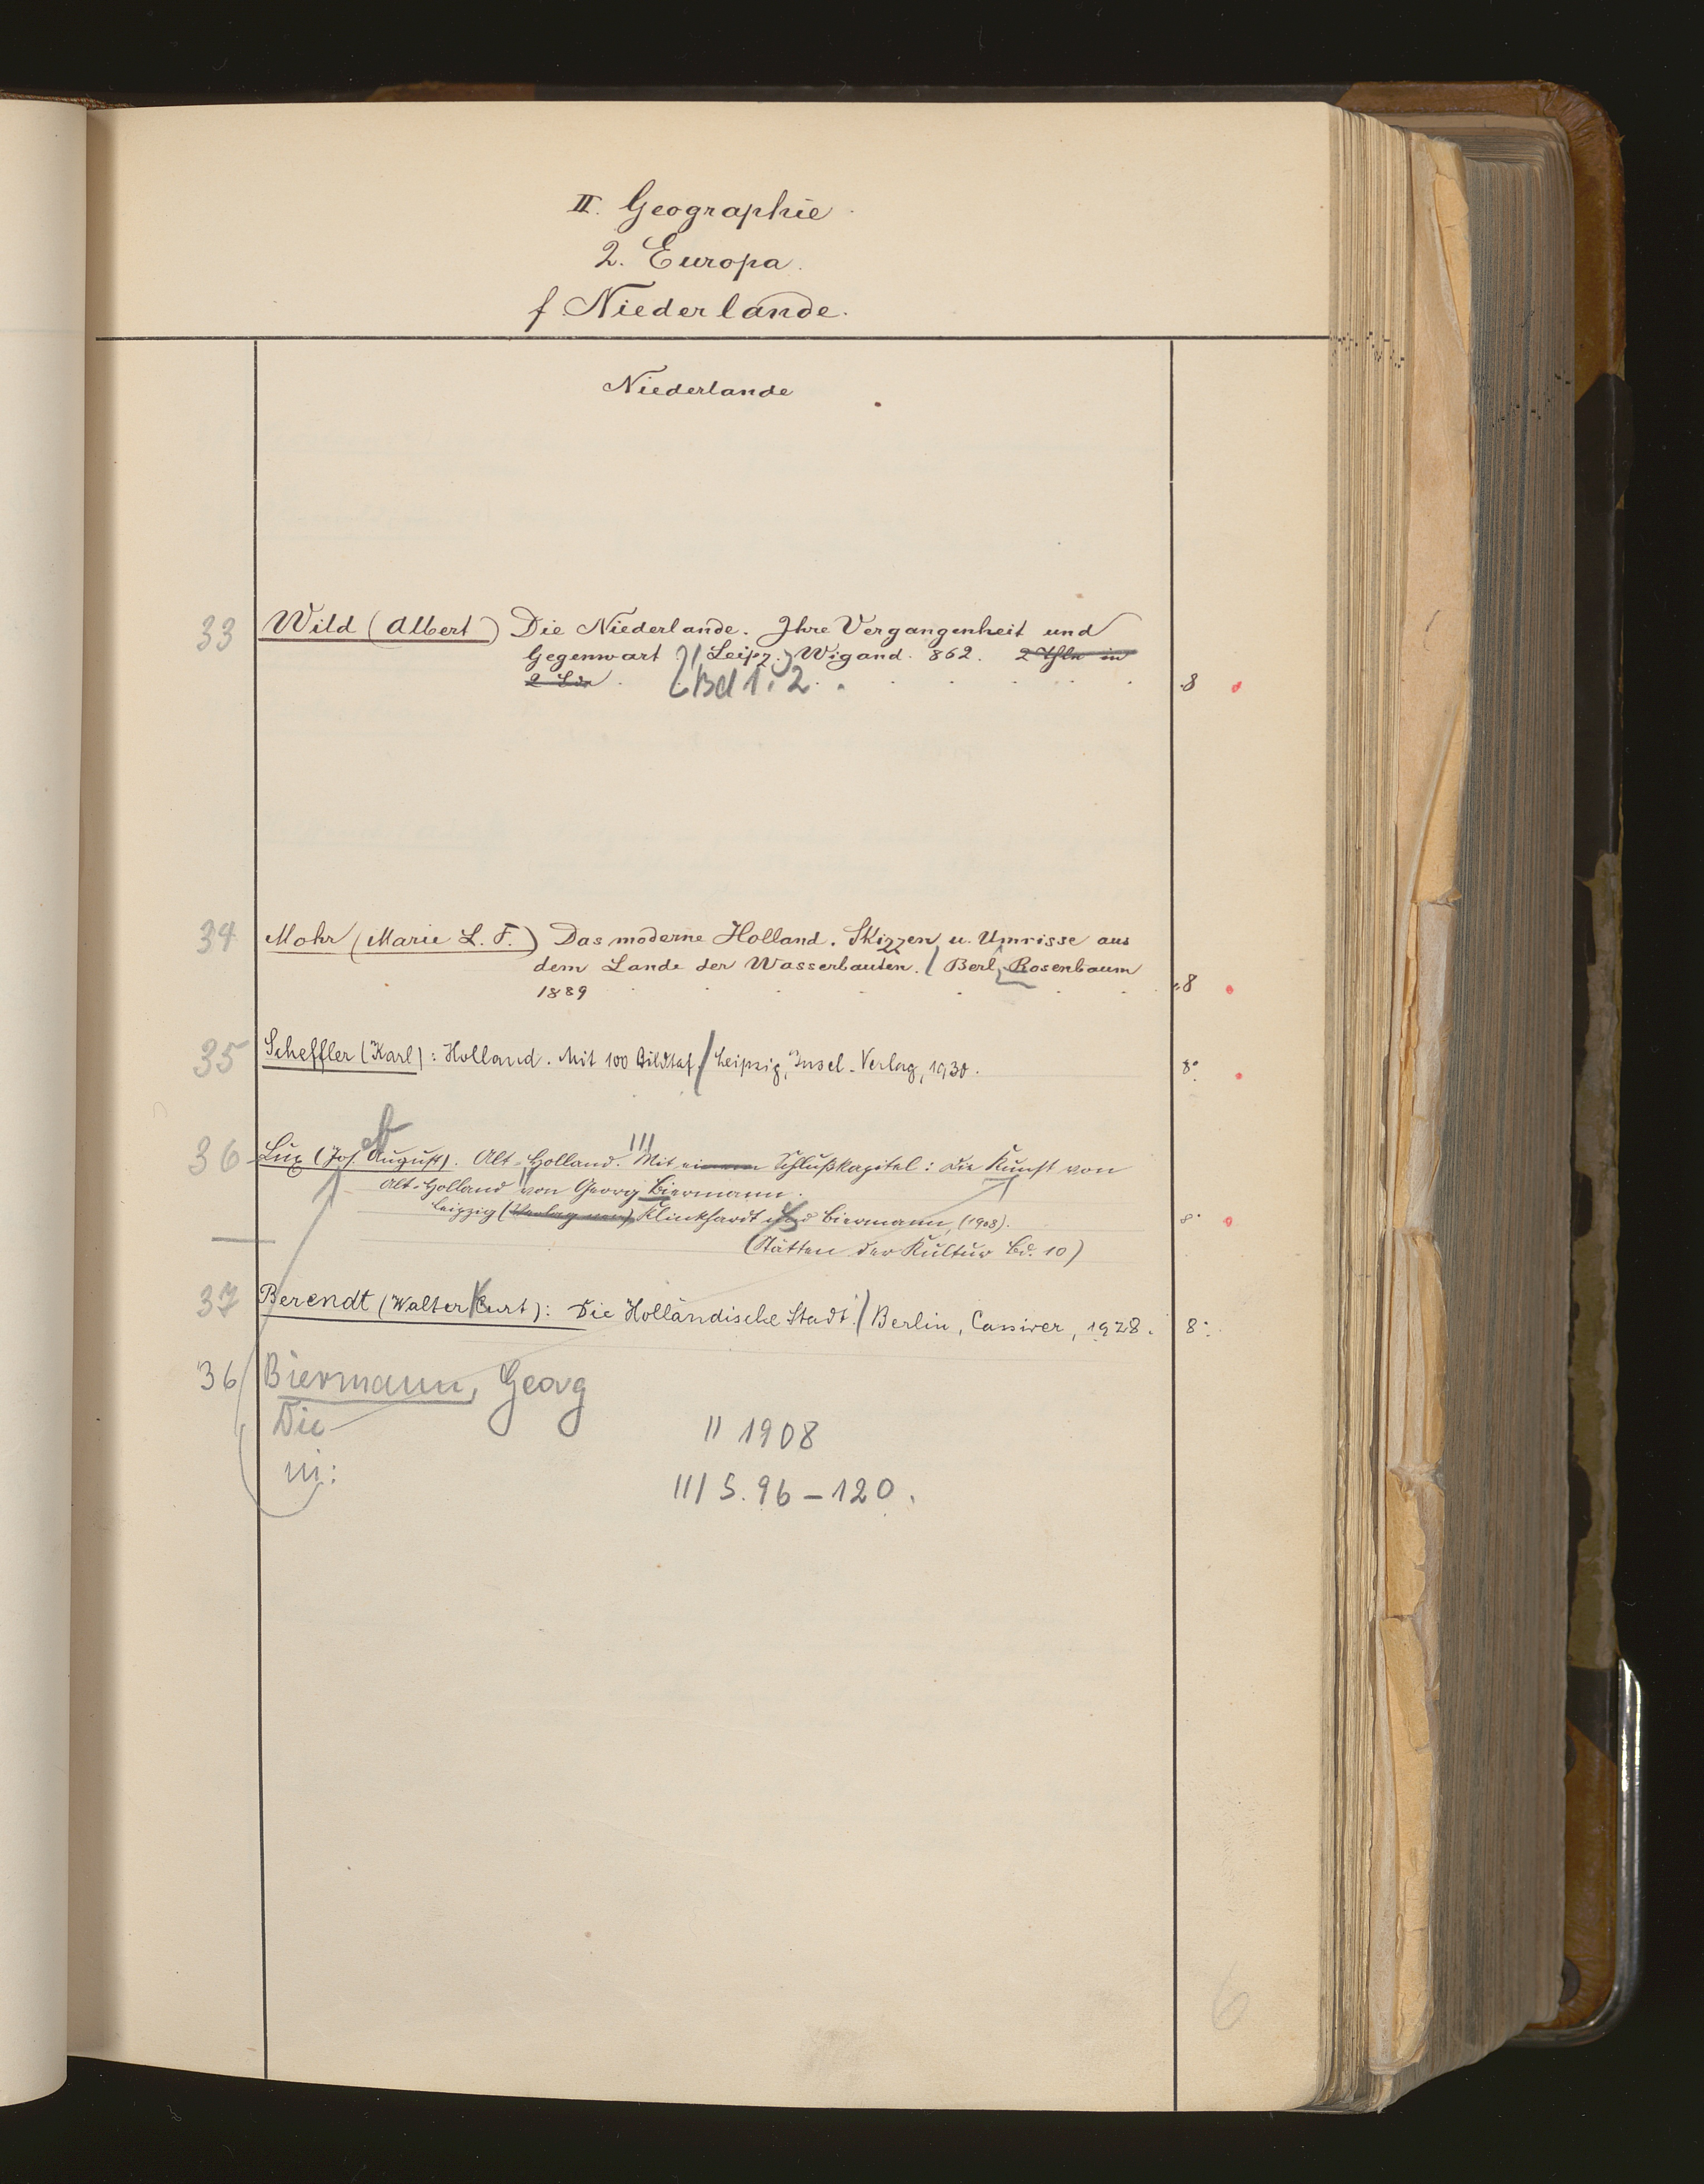 II. Geographie
2. Europa.
f Niederlande.
Niederlande
33 Wild (Albert) Die Niederlande. Ihre Vergangenheit und
Gegenwart / Leipz. Wigand. 862. 2 Thle in
2 Bdn. [Bd 1. 2. 8
34 Mohr (Marie L. F.) Das moderne Holland. Skizzen u. Umrisse aus
dem Lande der Wasserbauten. / Berl, Rosenbaum
1889 8
35 Scheffler (Karl): Holland. Mit 100 Bildtaf. / Leipzig, Insel-Verlag, 1930. 8°
36 Lux (Jos. August). Alt-Holland. /// Mit einem Schlußkapitel: Die Kunst von
Alt-Holland // von Georg Biermann.
Leipzig (Verlag von) Klinkhardt und Biermann, (1908). 8°
(Stätten der Kultur Bd. 10)
37 Berendt (Walter Curt): Die Holländische Stadt. / Berlin, Cassirer, 1928. 8°
36 Biermann, Georg
Die // 1908
in: /// S. 96-120.
6